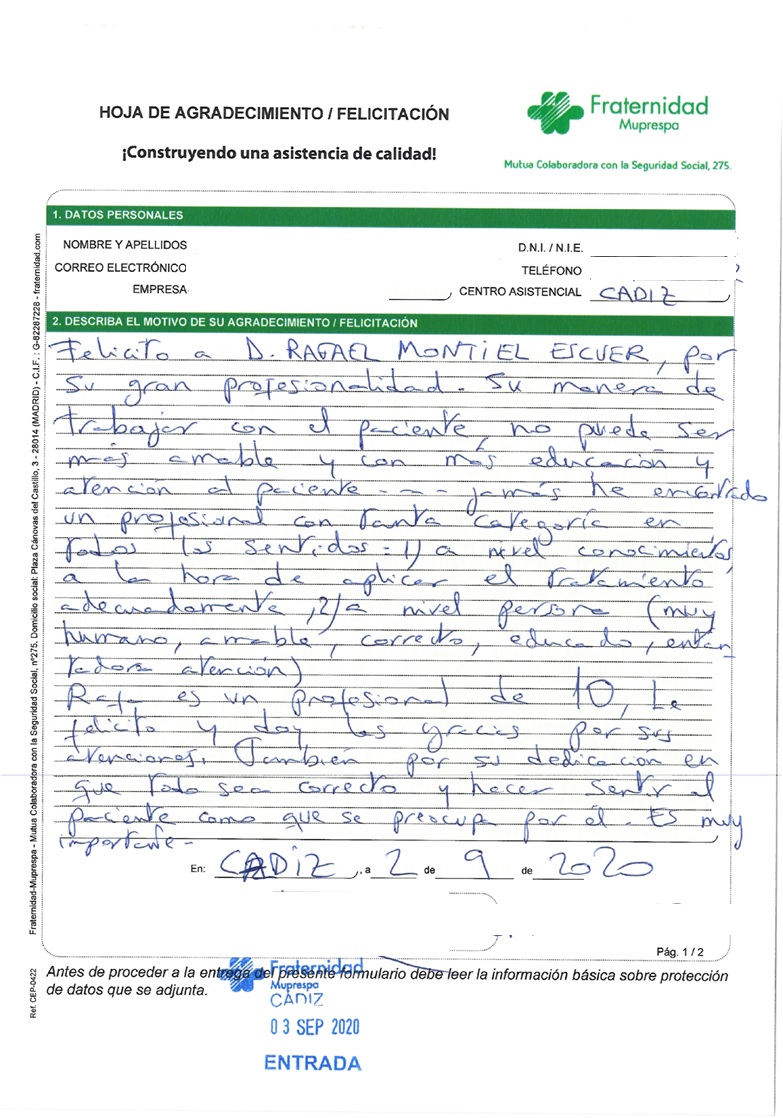 HOJA DE AGRADECIMIENTO / FELICITACIÓN
¡Construyendo una asistencia de calidad!
Fraternidad
Muprespa
Mutua Colaboradora con la Seguridad Social, 275.
1. DATOS PERSONALES
NOMBRE Y APELLIDOS
D.N.I. / N.I.E.
CORREO ELECTRÓNICO
TELÉFONO
EMPRESA
CENTRO ASISTENCIAL CÁDIZ
2. DESCRIBA EL MOTIVO DE SU AGRADECIMIENTO / FELICITACIÓN
Felicito a D. RAFAEL MONTIEL ESCUER, por
su gran profesionalidad. Su manera de
trabajar con el paciente, no puede ser
más amable y con más educación y
atención al paciente - - - jamás he encontrado
un profesional con tanta categoría en
todos los sentidos = 1) a nivel conocimientos
a la hora de aplicar el tratamiento
adecuadamente, 2) a nivel persona (muy
humano, amable, correcto, educado, encan
tadora atención)
Rafa es un profesional de 10, Le
felicito y doy las gracias por sus
atenciones. También por su dedicación en
que todo sea correcto y hacer sentir al
paciente como que se preocupa por él. Es muy
importante -
En: CÁDIZ, a 2 de 9 de 2020
Pág. 1 / 2
Antes de proceder a la entrega del presente formulario debe leer la información básica sobre protección
de datos que se adjunta.
Fraternidad
Muprespa
CÁDIZ
03 SEP 2020
ENTRADA
Fraternidad-Muprespa - Mutua Colaboradora con la Seguridad Social, nº275, Domicilio social: Plaza Cánovas del Castillo, 3 - 28014 (MADRID) - C.I.F. : G-82287228 - fraternidad.com
Ref. CEP-0422